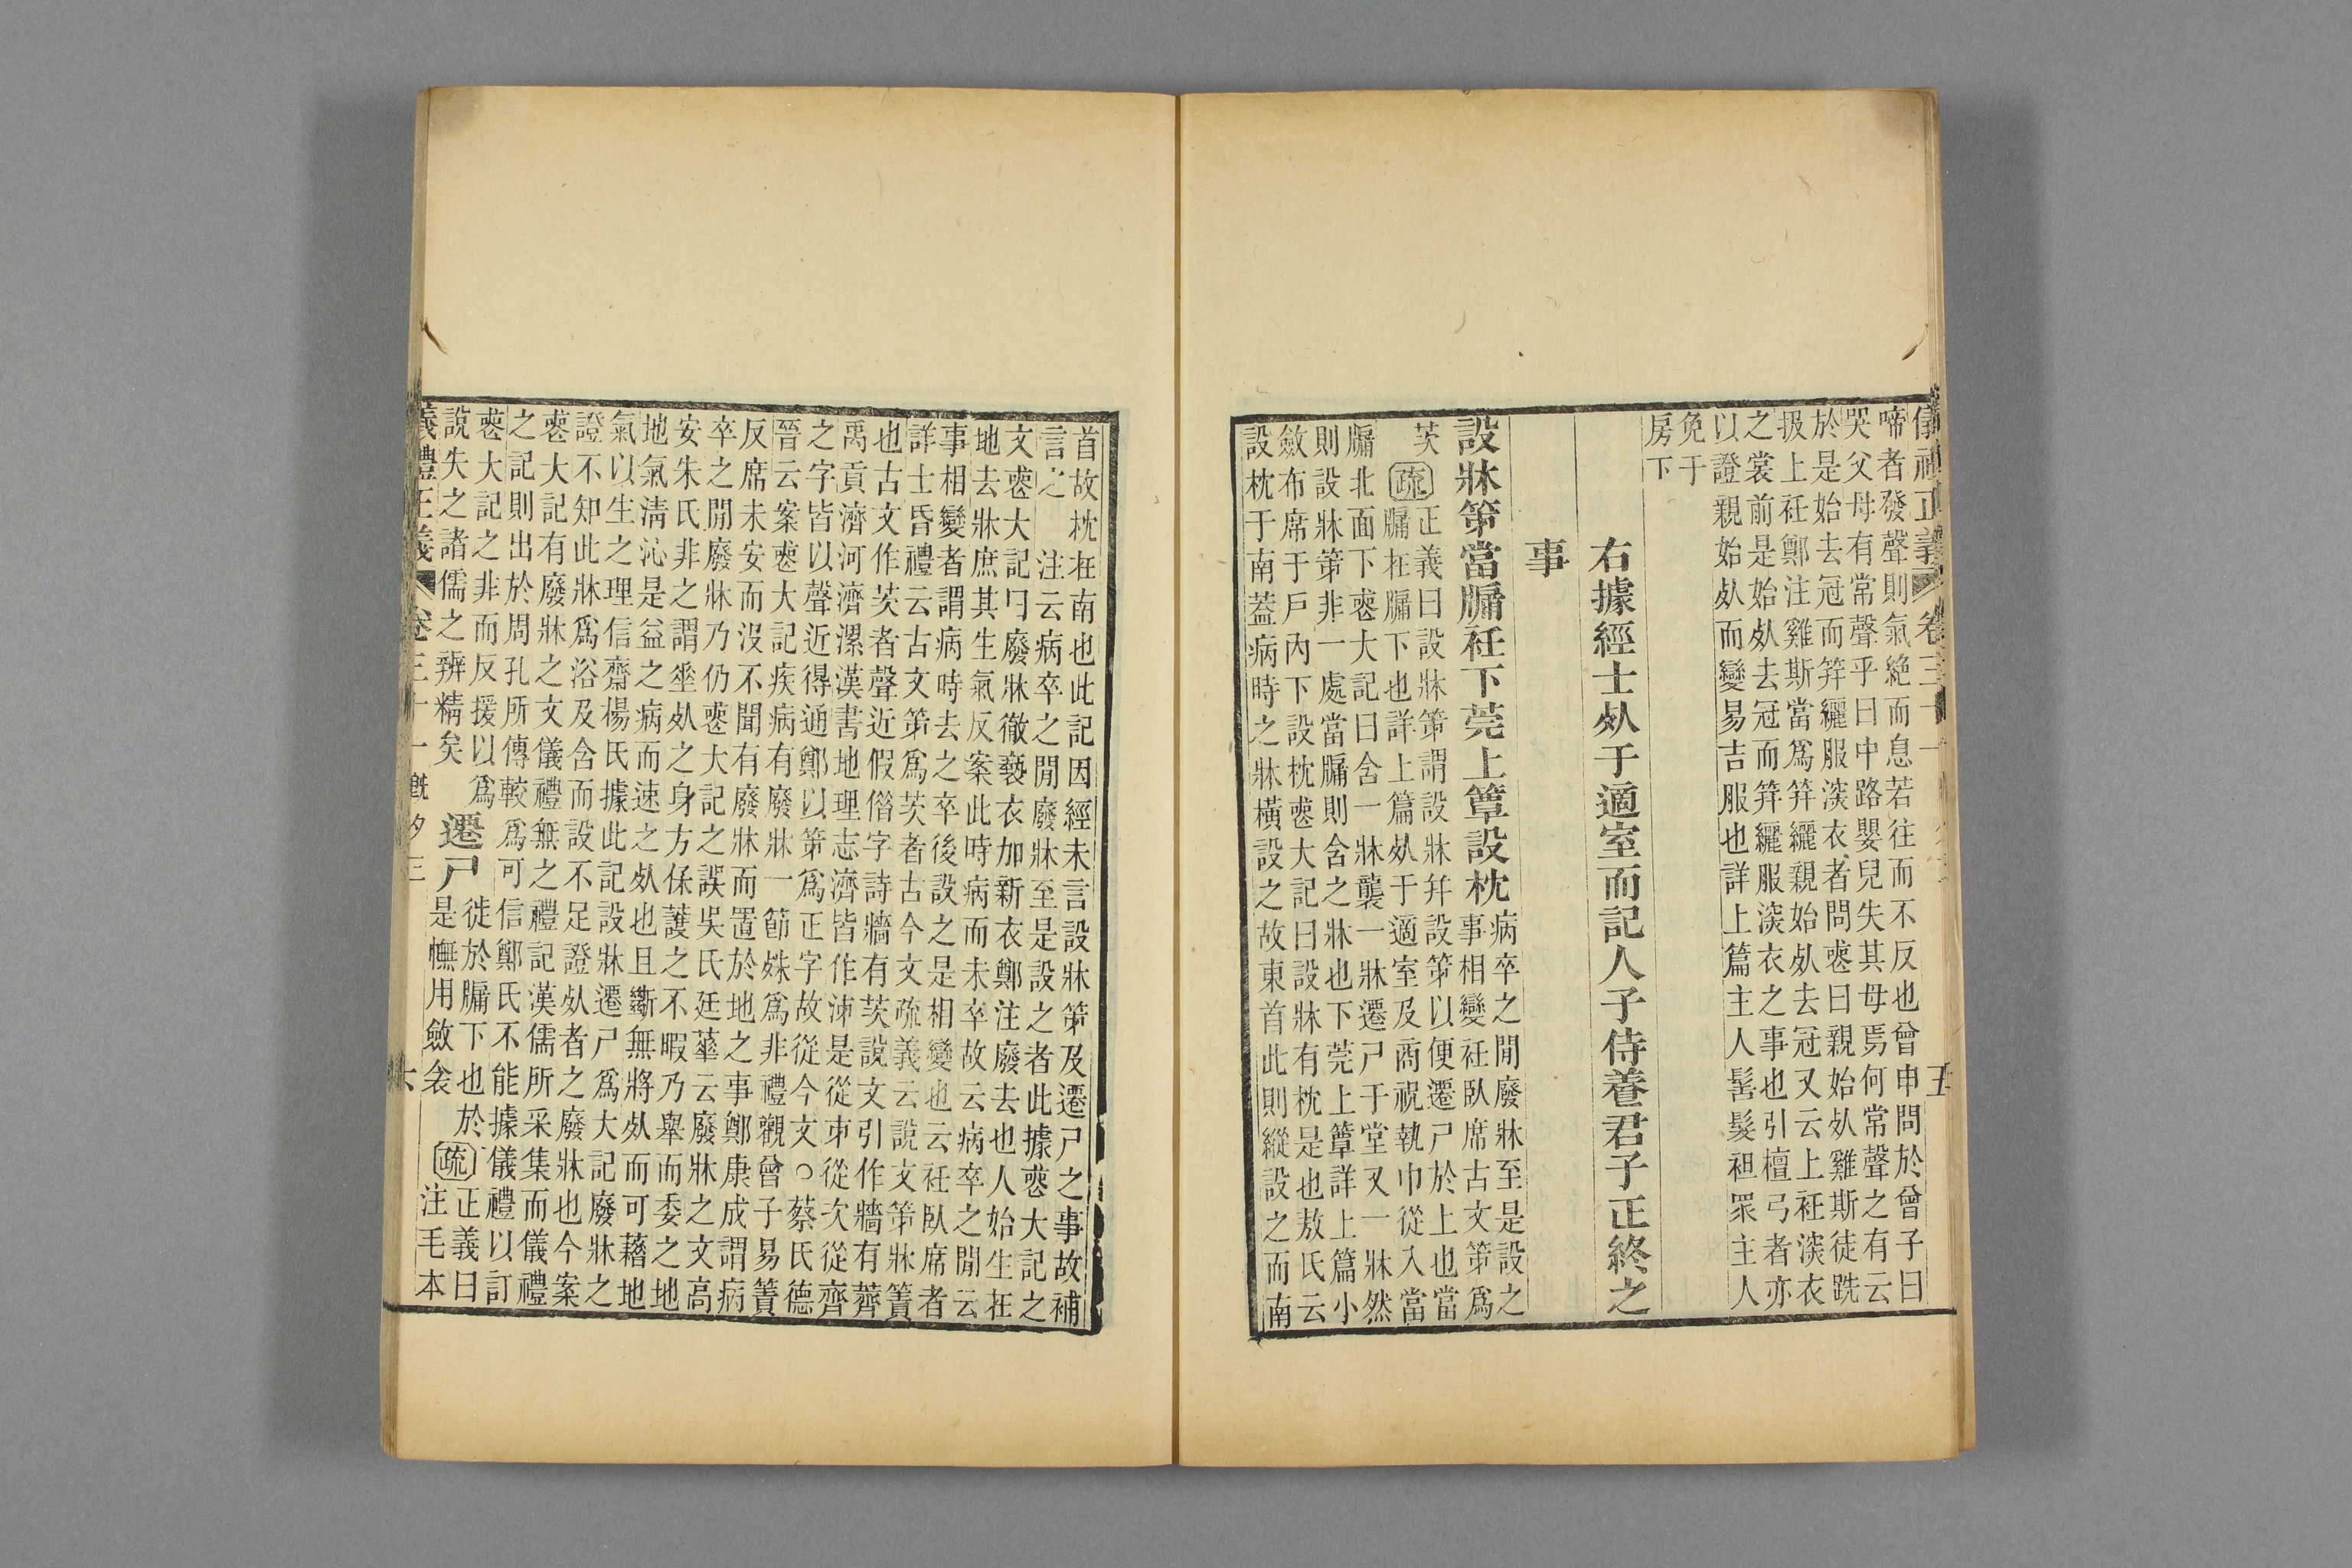 儀禮正義 卷三十一 五
啼者發聲則氣絶而息若往而不反也曾申問於曾子曰
哭父母有常聲乎曰中路嬰兒失其母焉何常聲之有云
於是始去冠而笄纚服深衣者問喪曰親始死雞斯徒跣
扱上衽鄭注雞斯當爲笄纚親始死去冠又云上衽深衣
之裳前是始死去冠而笄纚服深衣之事也引檀弓者亦
以證親始死而變易吉服也詳上篇主人髺髮袒眾主人
免于
房下
右據經士死于適室而記人子侍養君子正終之
事
設牀笫當牖衽下莞上簟設枕
病卒之閒廢牀至是設之
事相變衽臥席古文笫爲
茨 疏 正義曰設牀笫謂設牀并設笫以便遷尸於上也當
牖在牖下也詳上篇死于適室及商祝執巾從入當
牖北面下喪大記曰含一牀襲一牀遷尸于堂又一牀然
則設牀笫非一處當牖則含之牀也下莞上簟詳上篇小
斂布席于戶內下設枕喪大記曰設牀有枕是也敖氏云
設枕于南葢病時之牀橫設之故東首此則縱設之而南
首故枕在南也此記因經未言設牀笫及遷尸之事故補
言之 注云病卒之閒廢牀至是設之者此據喪大記之
文喪大記曰廢牀徹褻衣加新衣鄭注廢去也人始生在
地去牀庶其生氣反案此時病而未卒故云病卒之閒云
事相變者謂病時去之卒後設之是相變也云衽臥席者
詳士昏禮云古文笫爲茨者古今文疏義云說文笫牀簀
也古文作茨者聲近假借字詩牆有茨說文引作牆有薺
禹貢濟河濟漯漢書地理志濟皆作泲是從朿從次從齊
之字皆以聲近得通鄭以笫爲正字故從今文○蔡氏德
晉云案喪大記疾病有廢牀一節殊爲非禮觀曾子易簀
反席未安而沒不聞有廢牀而置於地之事鄭康成謂病
卒之閒廢牀乃仍喪大記之誤吳氏廷華云廢牀之文高
安朱氏非之謂垂死之身方保護之不暇乃舉而委之地
地氣淸沁是益之病而速之死也且斷無將死而可藉地
氣以生之理信齋楊氏據此記設牀遷尸爲大記廢牀之
證不知此牀爲浴及含而設不足證死者之廢牀也今案
喪大記有廢牀之文儀禮無之禮記漢儒所采集而儀禮
之記則出於周孔所傳較爲可信鄭氏不能據儀禮以訂
喪大記之非而反援以爲
說失之諸儒之辨精矣
遷尸
徙於牖下也於
是幠用斂衾
疏
正義曰
注毛本
義禮正義 卷三十一 旣夕三 六